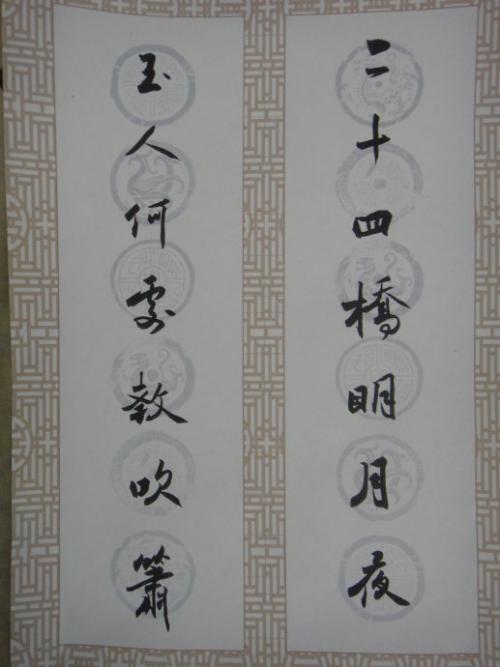 二十四橋明月夜
玉人何處教吹簫